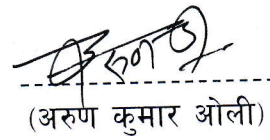 (अरुण कुमार ओली)